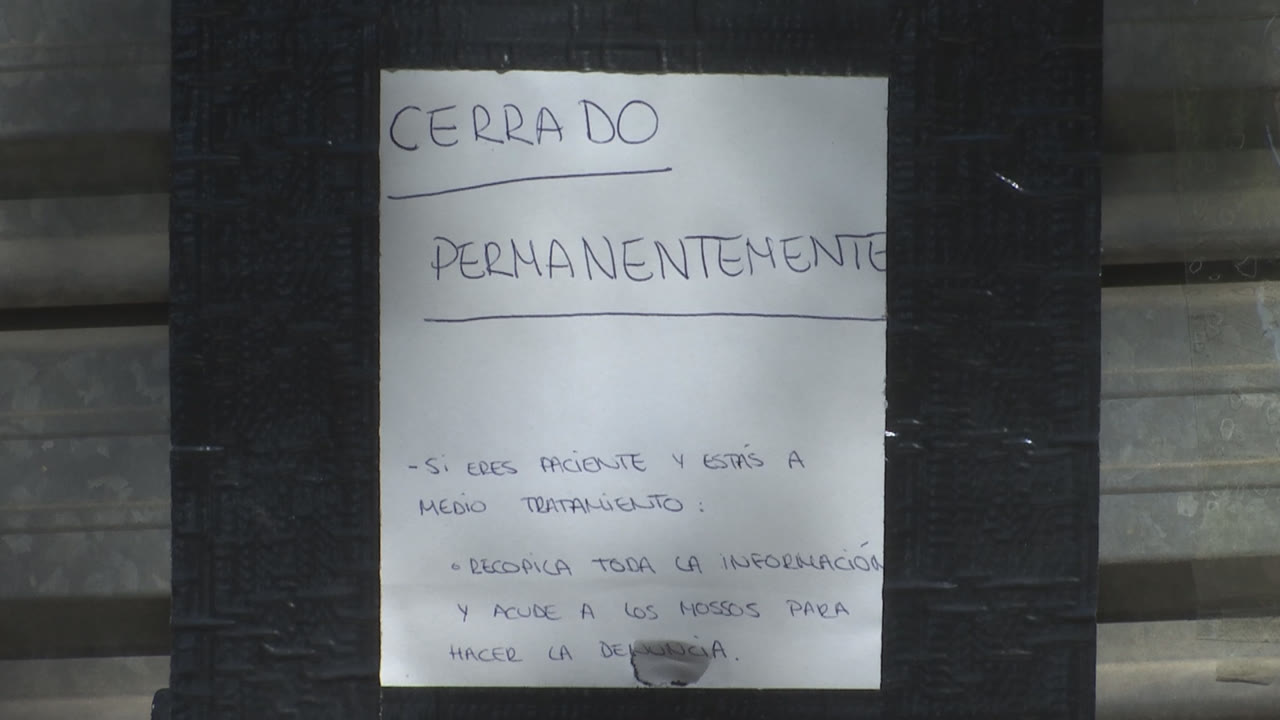 CERRADO
PERMANENTEMENTE
- Si ERES PACIENTE Y ESTÁS A
MEDIO TRATAMIENTO :
• RECOPILA TODA LA INFORMACIÓN
Y ACUDE A LOS MOSSOS PARA
HACER LA DENUNCIA.